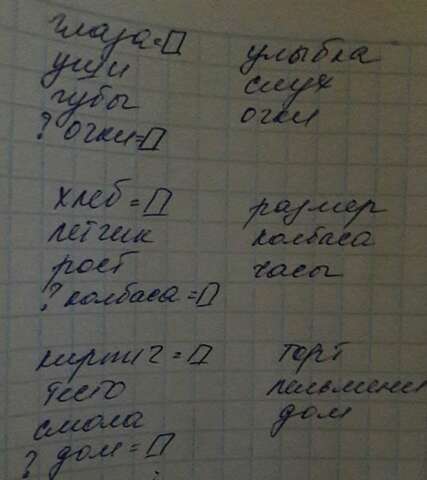 глаза=П улыбка
уши слух
губы очки
? очки=П
хлеб=П размер
летчик колбаса
рост часы
? колбаса=П
кирпич=П торт
тесто пельмени
смола дом
? дом=П